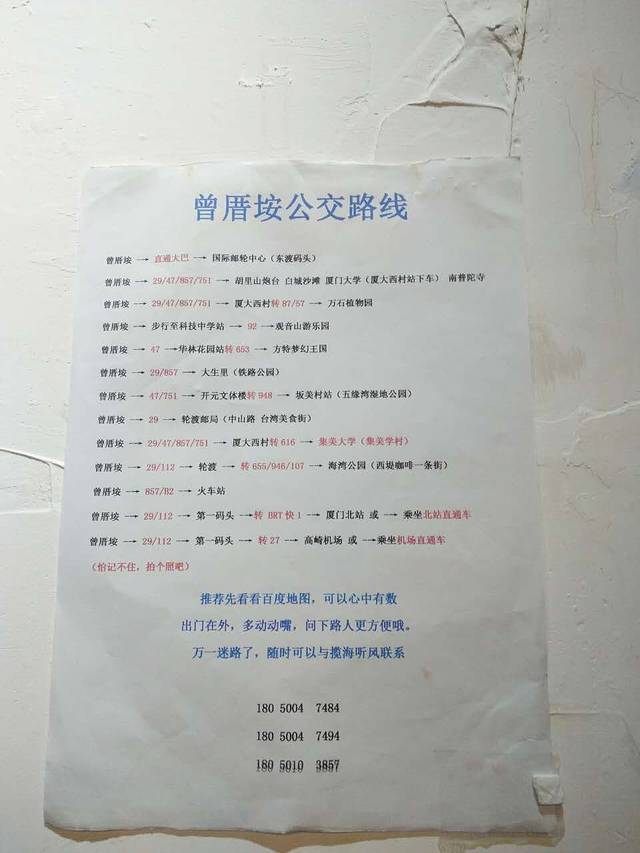 曾厝垵公交路线
曾厝垵 → 直通大巴 → 国际邮轮中心（东渡码头）
曾厝垵 → 29/47/857/751 → 胡里山炮台 白城沙滩 厦门大学（厦大西村站下车） 南普陀寺
曾厝垵 → 29/47/857/751 → 厦大西村转 87/57 → 万石植物园
曾厝垵 → 步行至科技中学站 → 92 →观音山游乐园
曾厝垵 → 47 →华林花园站转 653 → 方特梦幻王国
曾厝垵 → 29/857 → 大生里（铁路公园）
曾厝垵 → 47/751 → 开元文体楼转 948 → 坂美村站（五缘湾湿地公园）
曾厝垵 → 29 → 轮渡邮局（中山路 台湾美食街）
曾厝垵 → 29/47/857/751 → 厦大西村转 616 → 集美大学（集美学村）
曾厝垵 → 29/112 → 轮渡 → 转 655/946/107 → 海湾公园（西堤咖啡一条街）
曾厝垵 → 857/B2 → 火车站
曾厝垵 → 29/112 → 第一码头 →转 BRT 快 1 → 厦门北站 或 → 乘坐北站直通车
曾厝垵 → 29/112 → 第一码头 → 转 27 → 高崎机场 或 →乘坐机场直通车
（怕记不住，拍个愿吧）
推荐先看看百度地图，可以心中有数
出门在外，多动动嘴，问下路人更方便哦。
万一迷路了，随时可以与揽海听风联系
180 5004 7484
180 5004 7494
180 5010 3857